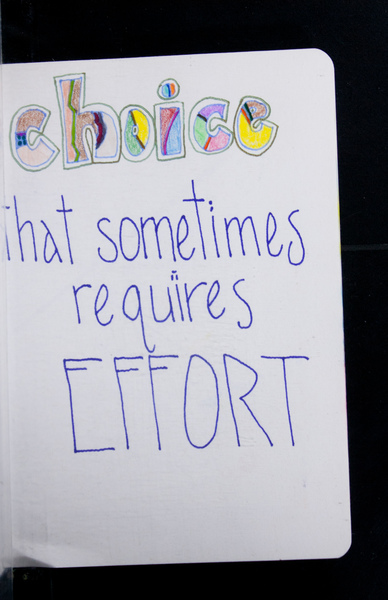 choice
that sometimes
requires
EFFORT